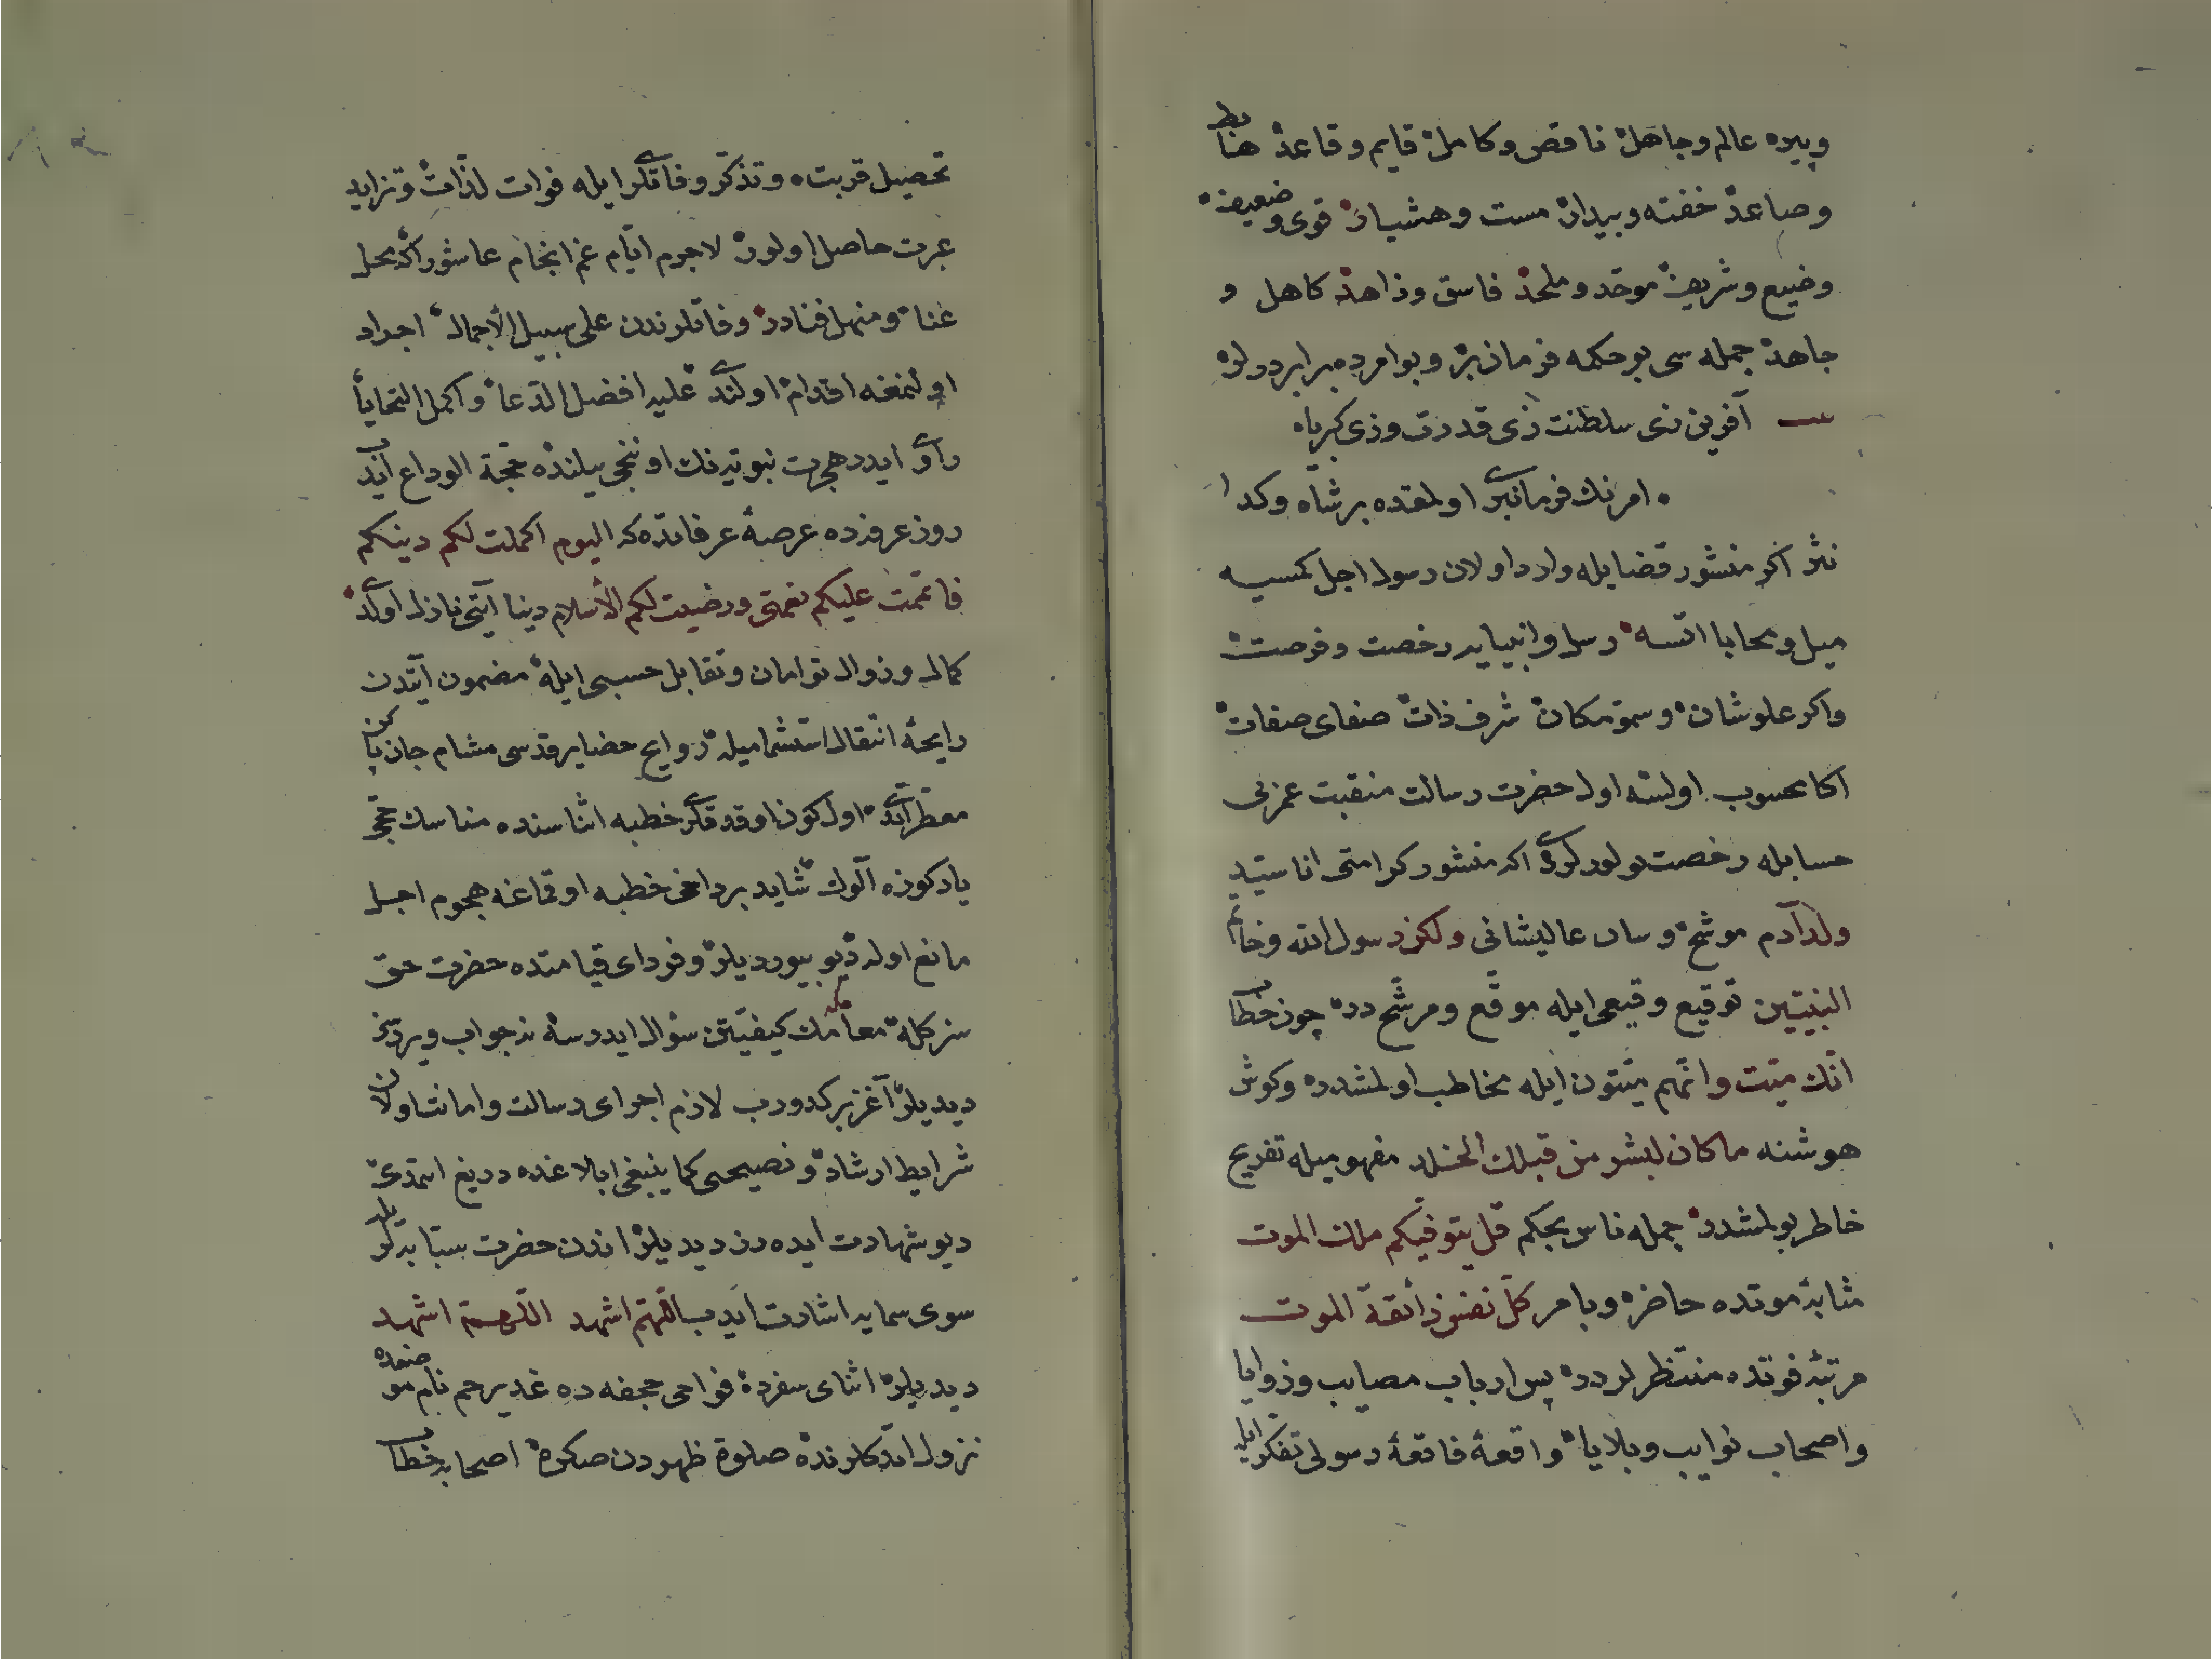 وپیره عالم وجاهل ناقص وکامل قایم وقاعد هابط
وصاعد خفته وبیدار مست وهشیار قوی وضعیف
وضیع وشریف موحد وملحد فاسق وزاهد کاهل و
جاهد جمله سی بو حکمه فرمانبر وبوامرده برابردرلر
آفرین زی سلطنت زی قدرت وزی کبریاء
امرنك فرمانبری اولمقده بر شاه وکدا
نثر اکر منشور قضایله وارد اولان رسول اجل کمسیه
میل ومحابا اتسه رسل وانبیایه رخصت وفرصت
واکر علو شان وسمو مکان شرف ذات صفای صفات
اکا محسوب اولسه اول حضرت رسالت منقبت عمزنی
حسابله رخصت بولورلردی که منشور کرامتی انا سید
ولد آدم موشح و سان عالیشانی ولکن رسول الله وخاتم
النبیین توقیع وقیعی ایله موقع ومرشح در چون خطاب
انك میت وانهم میتون ایله مخاطب اولمشدر وکوش
هوشنه ماکان لبشر من قبلك الخلد مفهومیله تفریح
خاطر بولمشدر جمله ناس بحکم قل یتوفیکم ملك الموت
مثابۀ موتده حاضر وبامر کل نفس ذائقة الموت
مرتبۀ فوتده منتظرلردر پس ارباب مصایب وزوایا
واصحاب نوایب وبلایا واقعۀ فاقعۀ رسولی تفکر ایله
تحصیل قربت وتذکر وفاتلر ایله فوات لذات وتزاید
عبرت حاصل اولور لاجرم ایام غم انجام عاشورا که محل
عنا ومنهل فنادر وفاتلرندن علی سبیل الاجمال اجراد
اولنمغه اقدام اولندی علیه افضل الدعا واکمل التحایا
راوی ایدر هجرت نبویه نك اوننجی ییلنده حجة الوداع ایدب
روز عرفه ده عرصۀ عرفاتده که الیوم اکملت لکم دینکم
فاتممت علیکم نعمتی ورضیت لکم الاسلام دینا آیتی نازل اولدی
کمال وزوال توامان وتقابل حسبی ایله مضمون آیتدن
رایحۀ انتقال استشمامیله روایح حضایر قدسی مشام جان پاکن
معطر ایتدی اول کون اوقودقلری خطبه اثناسنده مناسك حجی
یاد کوزه آلوك شاید بر داخی خطبه اوقماغه هجوم اجل
مانع اوله دیو بیوردیلر وفردای قیامتده حضرت حق
سزکله معاملەمك کیفیتین سؤال ایدرسه نه جواب ویررسز
دیدیلر آغز برکدورب لازم اجرای رسالت وامانت اولان
شرایط ارشاد ونصیحی کما ینبغی ابلاغده دریغ اتمدی
دیو شهادت ایده رز دیدیلر اندن حضرت سبابه لریله
سوی سمایه اشارت ایدب اللهم اشهد اللهم اشهد
دیدیلر اثنای سفرده نواحی جحفه ده غدیر خم نام موضعده
نزول اتدکلرنده صلوة ظهردن صکره اصحابه خطاب